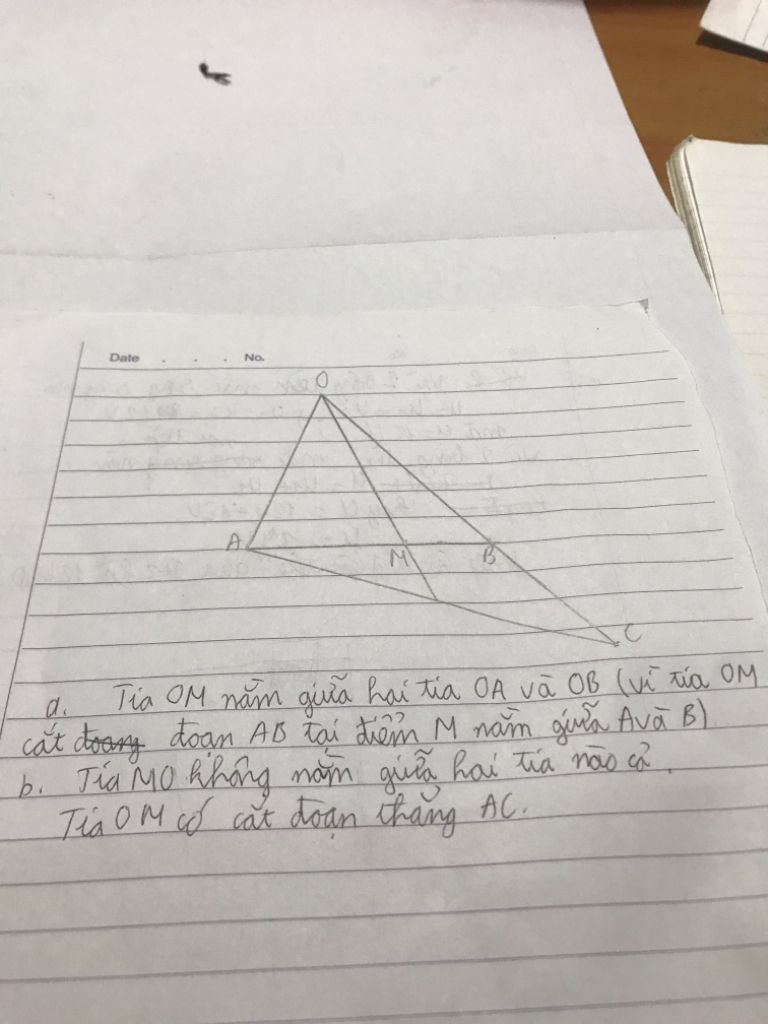 Date . . . No.
O
A
M
B
C
a. Tia OM nằm giữa hai tia OA và OB (vì tia OM
cắt đoạng đoạn AB tại điểm M nằm giữa A và B)
b. Tia MO không nằm giữa hai tia nào cả.
Tia OM có cắt đoạn thẳng AC.